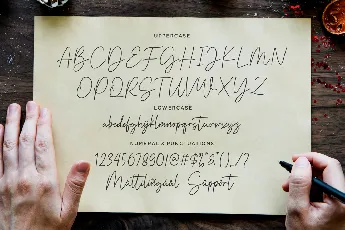 UPPERCASE
ABCDEFGHIJKLMN
OPQRSTUVWXYZ
LOWERCASE
abcdefghijklmnopqrstuvwxyz
NUMERAL & PUNCTUATIONS
1234567890!@#$%^&*(),./?
Multilingual Support